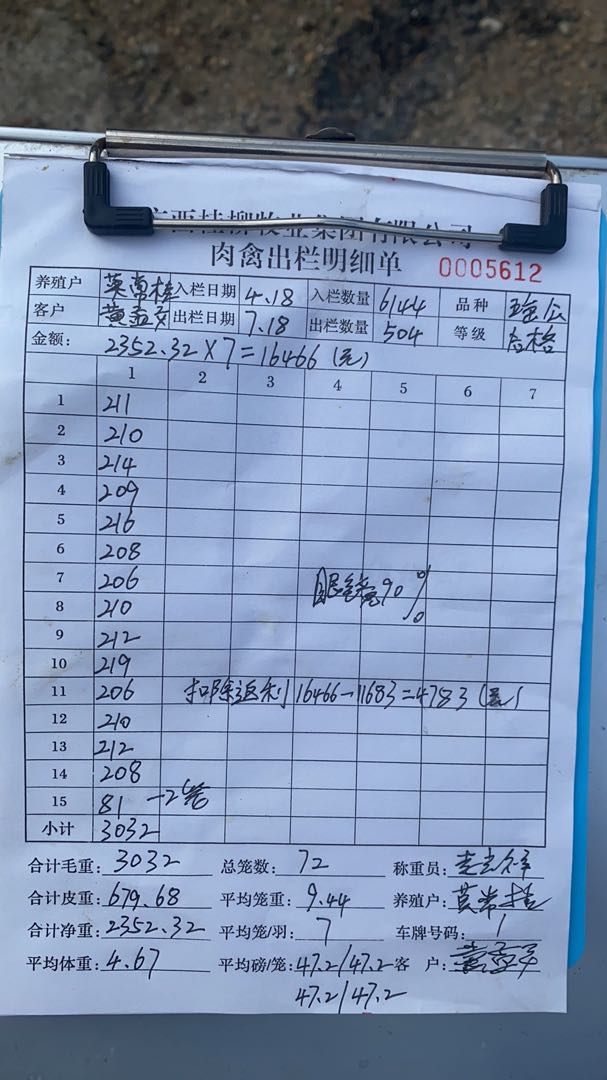 广西桂柳牧业集团有限公司
肉禽出栏明细单 0005612
养殖户 莫常桂 入栏日期 4.18 入栏数量 6144 品种
客户 出栏日期 7.18 出栏数量 504 等级 合格
金额: 2352.32×7=16466(元)
1 2 3 4 5 6 7
1 211
2 210
3 214
4 209
5 216
6 208
7 206 90%
8 210
9 212
10 219
11 206 扣除返利 16466-11683=4783(元)
12 210
13 212
14 208
15 81 -2笼
小计 3032
合计毛重: 3032 总笼数: 72 称重员:
合计皮重: 679.68 平均笼重: 9.44 养殖户: 莫常桂
合计净重: 2352.32 平均笼/羽: 7 车牌号码: 1
平均体重: 4.67 平均磅/笼: 47.2/47.2 客 户:
47.2/47.2